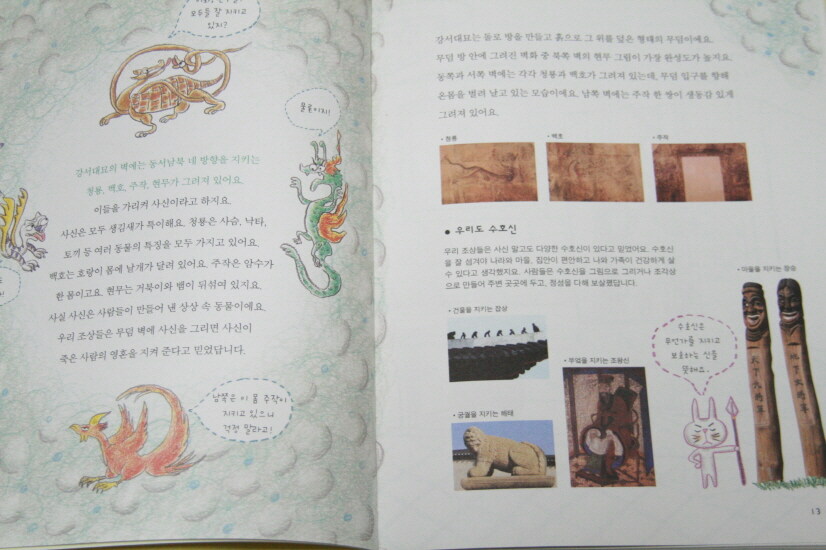 모두들 잘 지키고
있지?
물론이지!
강서대묘의 벽에는 동서남북 네 방향을 지키는
청룡, 백호, 주작, 현무가 그려져 있어요.
이들을 가리켜 사신이라고 하지요.
사신은 모두 생김새가 특이해요. 청룡은 사슴, 낙타,
토끼 등 여러 동물의 특징을 모두 가지고 있어요.
백호는 호랑이 몸에 날개가 달려 있어요. 주작은 암수가
한 몸이고요. 현무는 거북이와 뱀이 뒤섞여 있지요.
사실 사신은 사람들이 만들어 낸 상상 속 동물이에요.
우리 조상들은 무덤 벽에 사신을 그리면 사신이
죽은 사람의 영혼을 지켜 준다고 믿었답니다.
남쪽은 이 몸 주작이
지키고 있으니
걱정 말라고!
강서대묘는 돌로 방을 만들고 흙으로 그 위를 덮은 형태의 무덤이에요.
무덤 방 안에 그려진 벽화 중 북쪽 벽의 현무 그림이 가장 완성도가 높지요.
동쪽과 서쪽 벽에는 각각 청룡과 백호가 그려져 있는데, 무덤 입구를 향해
온몸을 벌려 날고 있는 모습이에요. 남쪽 벽에는 주작 한 쌍이 생동감 있게
그려져 있어요.
• 청룡
• 백호
• 주작
● 우리도 수호신
우리 조상들은 사신 말고도 다양한 수호신이 있다고 믿었어요. 수호신
을 잘 섬겨야 나라와 마을, 집안이 편안하고 나와 가족이 건강하게 살
수 있다고 생각했지요. 사람들은 수호신을 그림으로 그리거나 조각상
으로 만들어 주변 곳곳에 두고, 정성을 다해 보살폈답니다.
• 건물을 지키는 잡상
• 부엌을 지키는 조왕신
• 궁궐을 지키는 해태
• 마을을 지키는 장승
수호신은
무언가를 지키고
보호하는 신을
말해요.
13